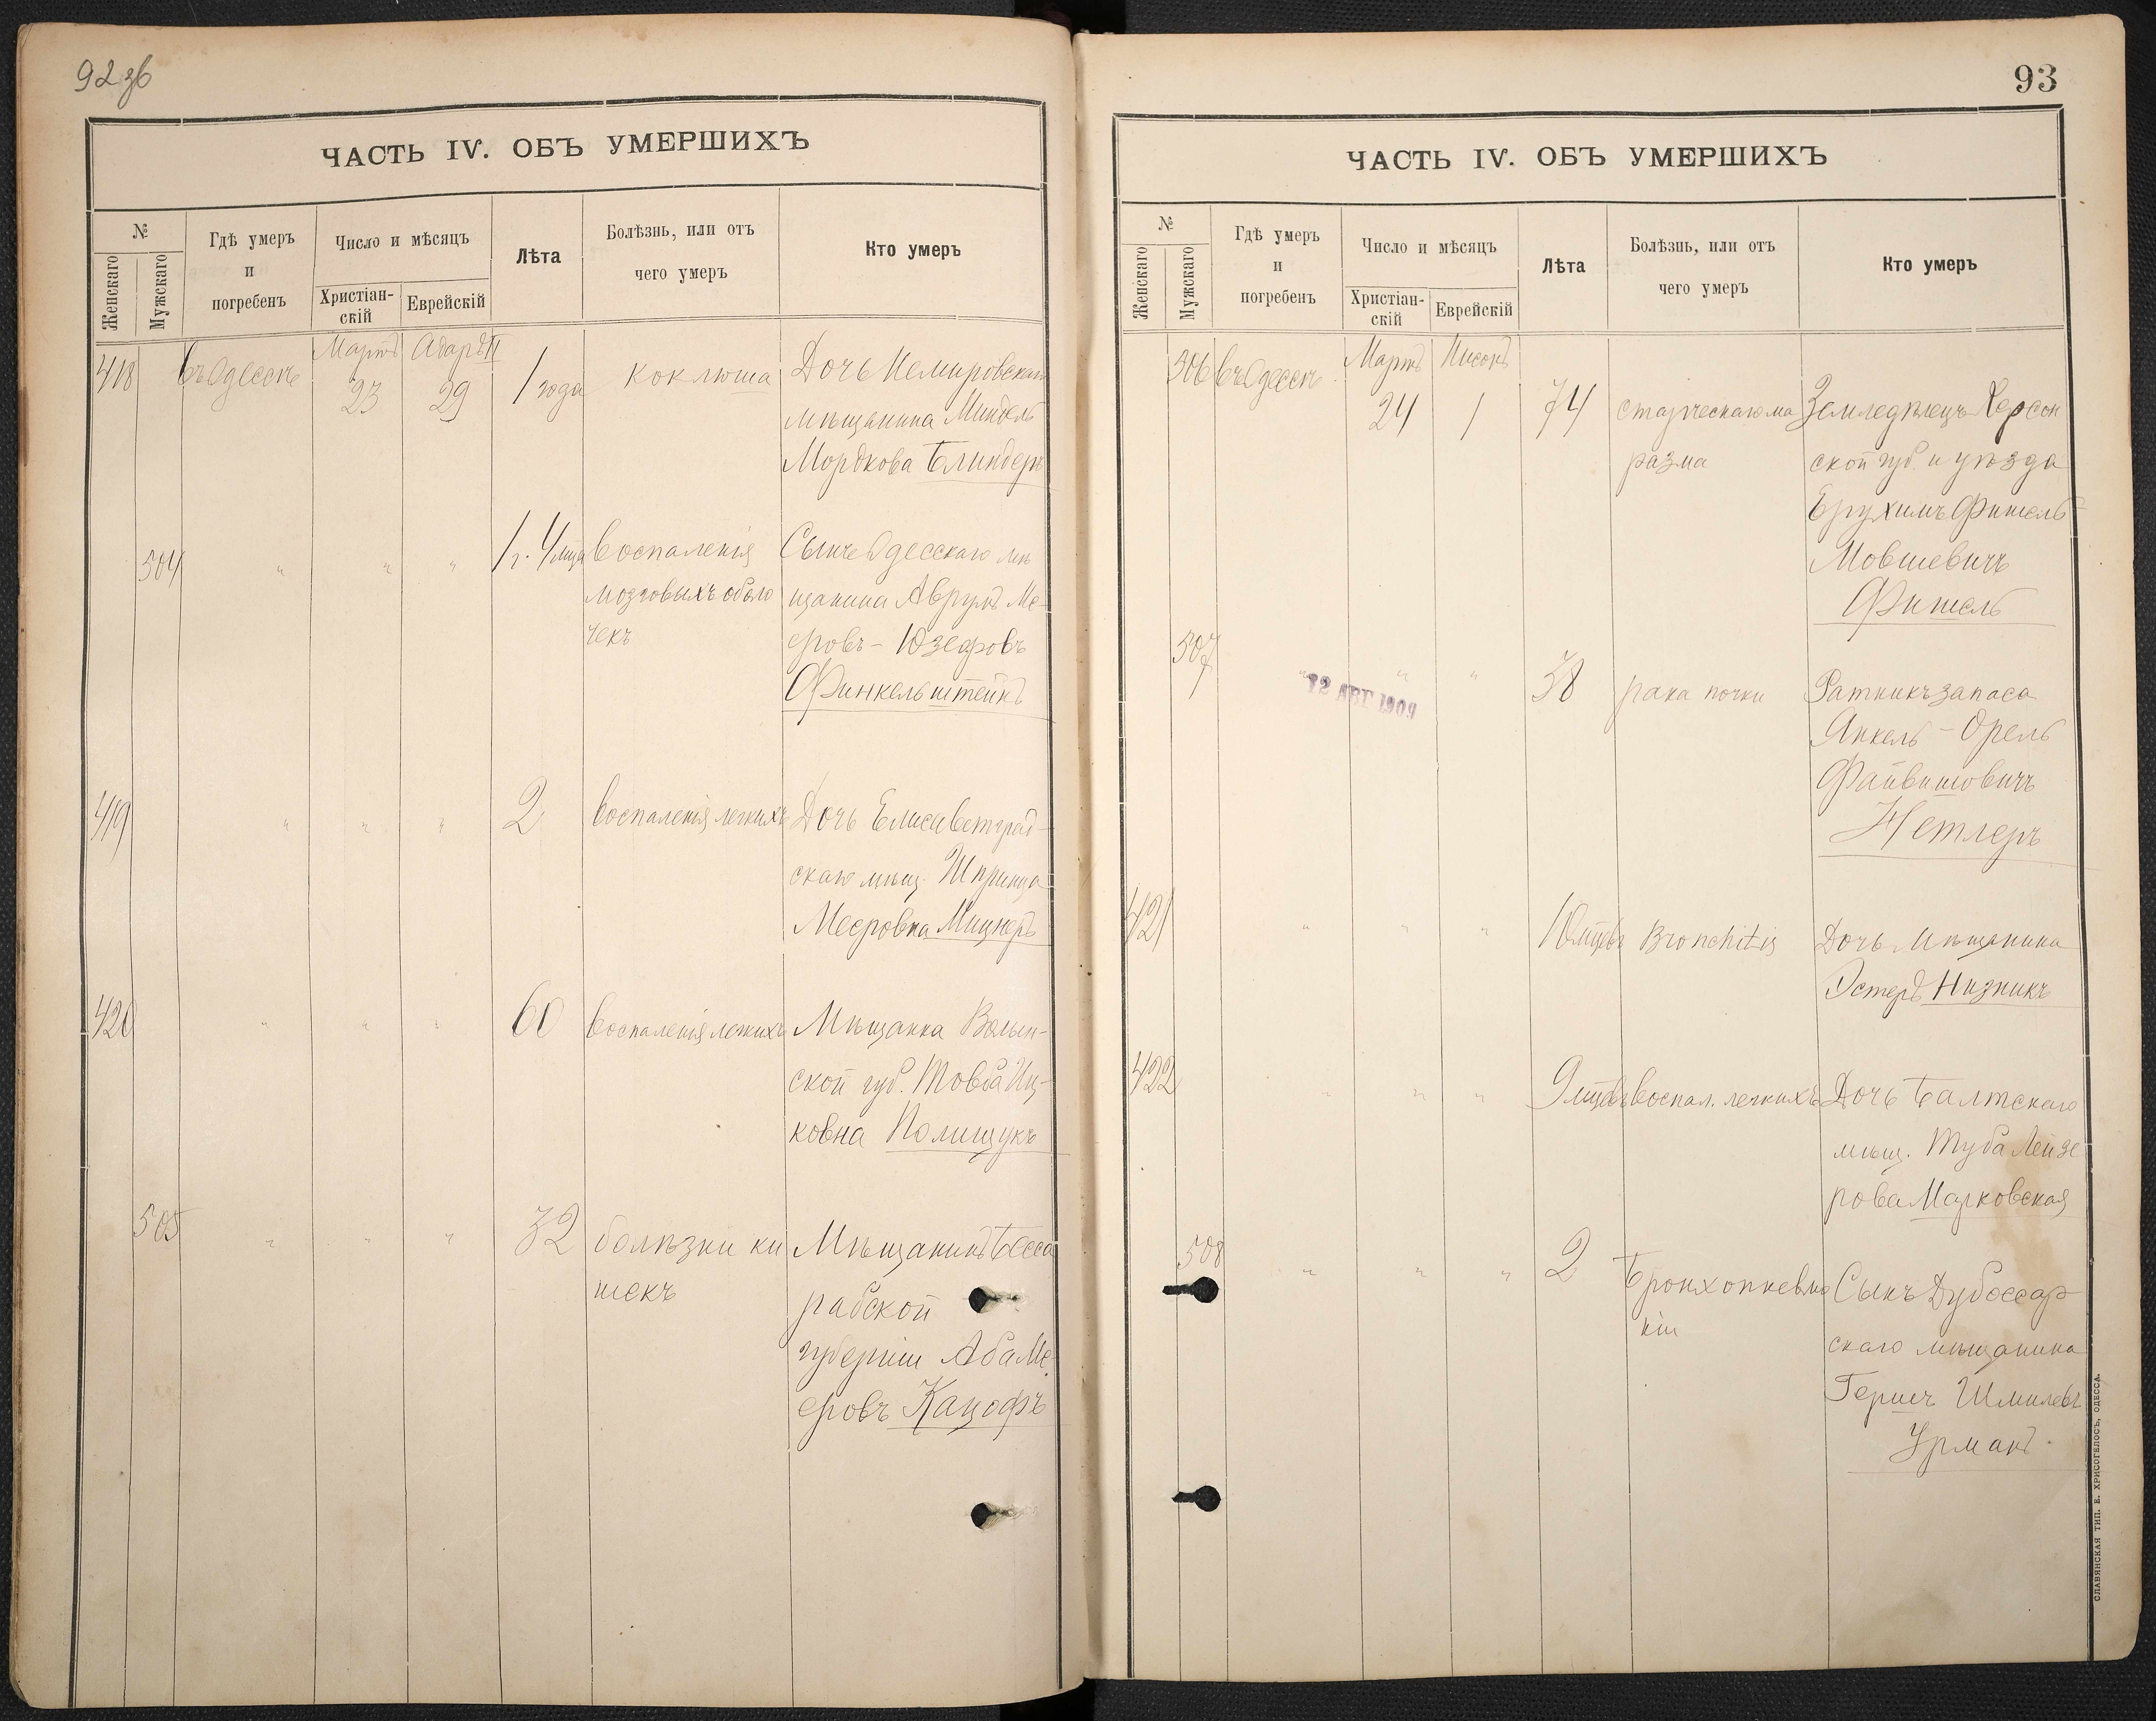 92 зв
ЧАСТЬ IV. ОБЪ УМЕРШИХЪ
№
Женскаго
Мужскаго
Гдѣ умеръ
и
погребенъ
Число и мѣсяцъ
Христіан-
скій
Еврейскій
Лѣта
Болѣзнь, или отъ
чего умеръ
Кто умеръ
418 въ Одессѣ Мартъ 23 Адаръ II 29 1 года коклюша Дочь Немировскаго
мѣщанина Миндель
Мордкова Блиндеръ
504 " " " 1 г. 4 мца воспаленія Сынъ Одесскаго мѣ
мозговыхъ оболо щанина Аврумъ Ме-
чекъ еровъ - Юзефовъ
Финкельштейнъ
419 " " " 2 воспаленія легкихъ Дочь Елисаветград-
скаго мѣщ. Шпринца
Мееровна Мицнеръ
420 " " " 60 воспаленія легкихъ Мѣщанка Волын-
ской губ. Товба Иц-
ковна Полищукъ
505 " " " 32 болѣзни ки Мѣщанинъ Бесса
шекъ рабской
губерніи Аба Ме-
еровъ Кацофъ
93
ЧАСТЬ IV. ОБЪ УМЕРШИХЪ
№
Женскаго
Мужскаго
Гдѣ умеръ
и
погребенъ
Число и мѣсяцъ
Христіан-
скій
Еврейскій
Лѣта
Болѣзнь, или отъ
чего умеръ
Кто умеръ
506 въ Одессѣ Мартъ 24 Нисонъ 1 74 старческаго ма Земледѣлецъ Херсон
разма ской губ. и уѣзда
Ерухимъ Фишель
Мовшевичъ
Фишель
507 " " " 38 рака почки Ратникъ запаса
12 АВГ 1909
Янкель - Орель
Файвишовичъ
Нетлеръ
421 " " " 10 мцевъ Bronchitis Дочь Мѣщанина
Эстеръ Низникъ
422 " " " 9 мцевъ воспал. легкихъ Дочь Балтскаго
мѣщ. Туба Лейзе
рова Марковская
508 " " " 2 Бронхопневмо Сынъ Дубоссар
ніи скаго мѣщанина
Гершъ Шмилевъ
Урманъ.
СЛАВЯНСКАЯ ТИП. Е. ХРИСОГЕЛОСЪ, ОДЕССА.